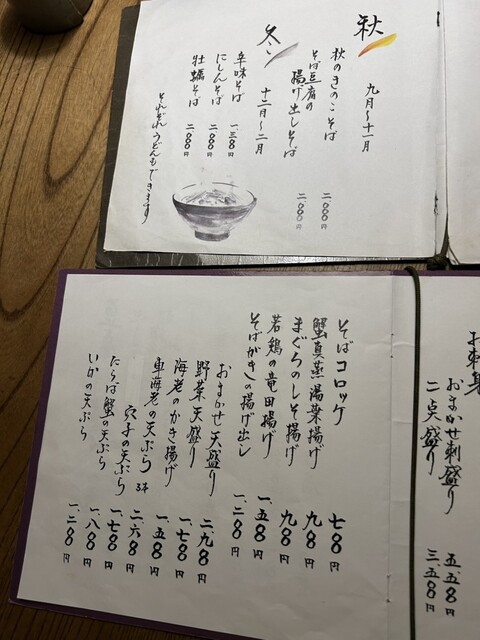 秋 九月〜十一月
秋のきのこそば 二〇〇〇円
そば豆腐の
揚げ出しそば 二〇〇〇円
冬 十二月〜二月
辛味そば 一三〇〇円
にしんそば 二〇〇〇円
牡蠣そば 二〇〇〇円
それぞれうどんもできます
お刺身
おまかせ刺盛り 五、五〇〇円
二点盛り 三、五〇〇円
そばコロッケ 七〇〇円
蟹真蒸湯葉揚げ 九〇〇円
まぐろのしそ揚げ 九〇〇円
若鶏の竜田揚げ 一、五〇〇円
そばがきの揚げ出し 一、二〇〇円
おまかせ天盛り 二、九〇〇円
野菜天盛り 一、七〇〇円
海老のかき揚げ 一、五〇〇円
車海老の天ぷら 3本 二、六〇〇円
穴子の天ぷら 一、七〇〇円
たらば蟹の天ぷら 一、八〇〇円
いかの天ぷら 一、二〇〇円